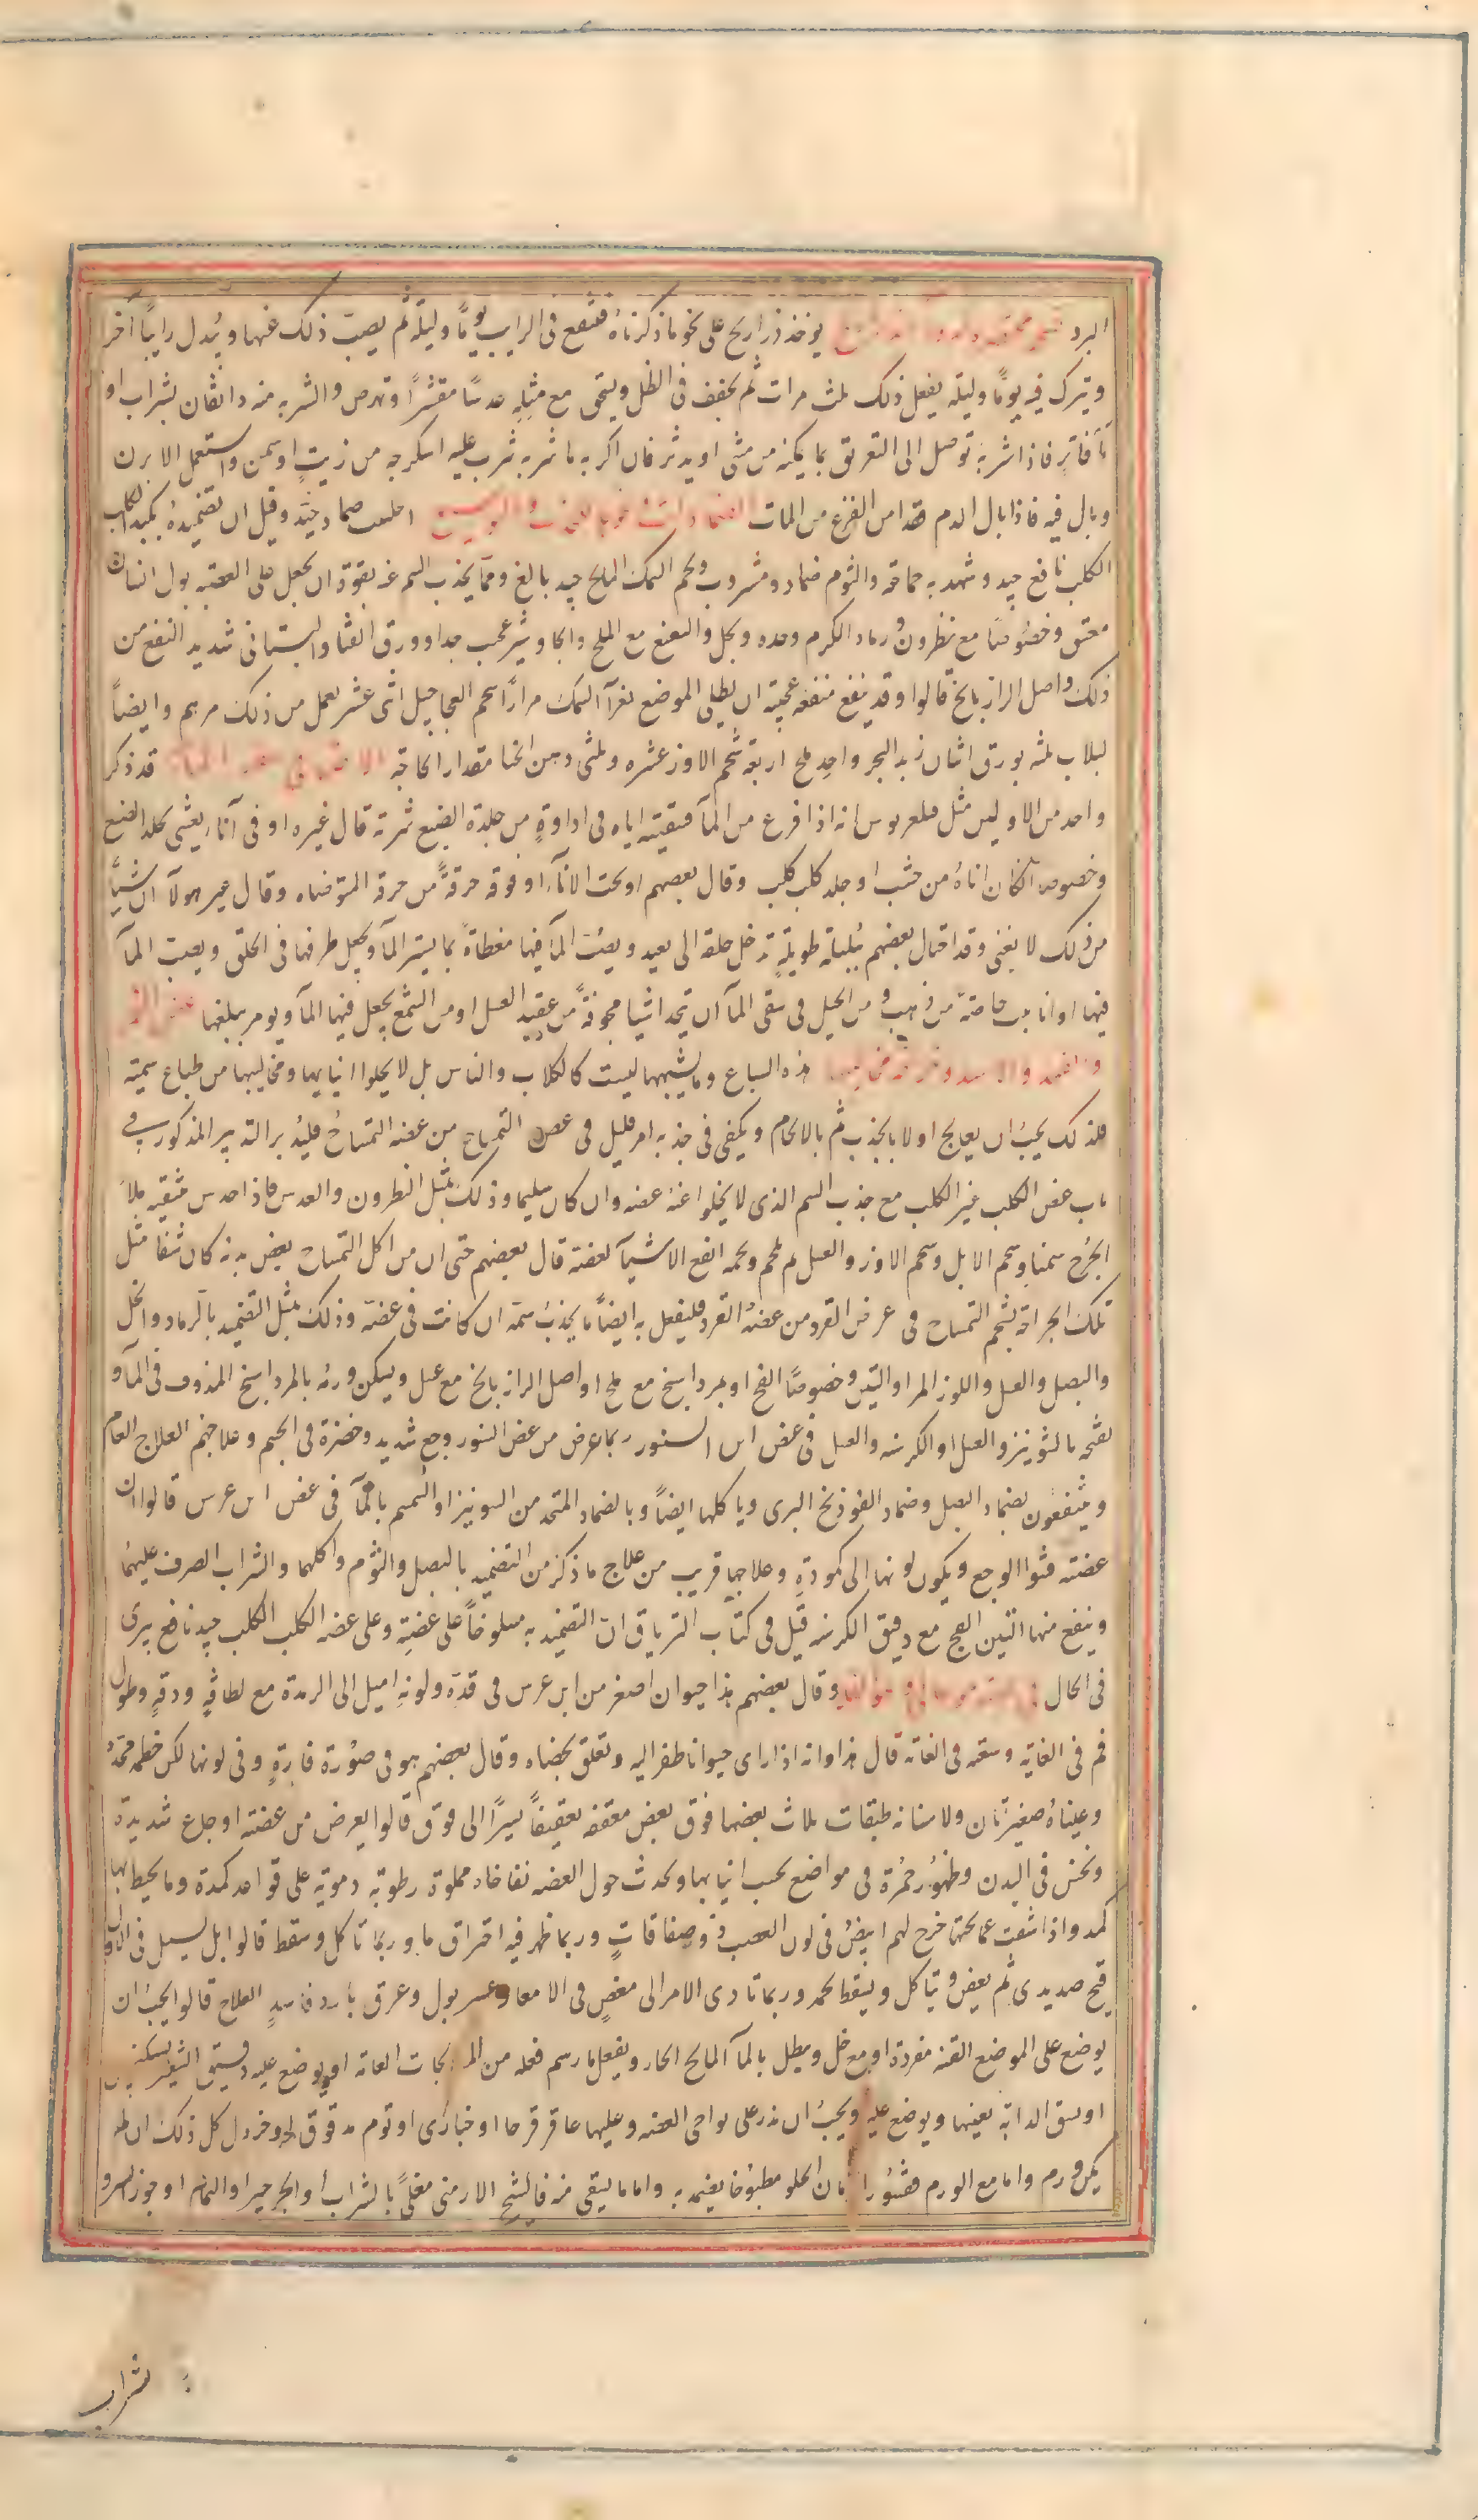 البرد يوخذ ذراريح على نحو ما ذكرناه فتنقع فى الرايب يوماً وليلة ثم يصبّ ذلك عنها ويُبدل رايباً آخر
ويترك فيه يوماً وليلة يفعل ذلك ثلث مرات ثم يجفف فى الظل ويسحق مع مثلِهِ عدسًا مقشرًا وتقرص والشربه منه دانقان بشراب او
مآءٍ فاتر فاذا شربه توصل الى التعريق بما يمكنه من مشى او يدثر فان اكربه ما شربه شرب عليه اسكرجه من زيتٍ او سمن واستعمل الابزن
وبال فيه فاذا بال الدم فقد امن الفزع من المآء الحلتيت ضماد جيّد وقيل ان تضميدهُ بكبد الكلب
الكلب نافع جيد وشهد به جماعة والثوم ضماد ومشروب ولحم السمك المالح جيد بالغ ومما يجذب السم عنه بقوة ان يجعل على العضة بول انسان
معتق وخصُوصًا مع نطرون ورماد الكرم وحده وبخل والنعنع مع الملح والجاوشير عجيب جدا وورق القثاء البستانى شديد النفع من
ذلك واصل الرازيانج قالوا وقد ينفع منفعة عجيبة ان يطلى الموضع بغرآء السمك مرارًا شحم العجاجيل اثنى عشر يعمل من ذلك مرهم وايضاً
لبلاب ثلثه بورق اثنان زبد البحر واحد ملح اربعة شحم الاوز عشره وثلثى دهن الحنا مقدار الحاجة قد ذكر
واحد من الاوليين مثل فيلغريوس انه اذا فزع من المآء فسقيته اياه فى اداوةٍ من جلدة الضبع شربه قال غيره او فى آناء يغشى بجلد الضبع
وخصوصا ان كان اناؤهُ من خشب او جلد كلب كلب وقال بعضهم او تحت الانآء او فوقه خرقةً من خرقة المتوضاه وقال غير هولآء ان شياً
من ذلك لا يغنى وقد احتال بعضهم ببُلبلة طويلةٍ تدخل حلقه الى بعيد ويصبّ المآء فيها مغطاة بما يستر المآء ويجعل طرفها فى الحلق ويصبّ المآء
فيها او انابيب خاصّة من ذهب ومن الحيل فى سقى المآء ان تتخذ اشيا مجوفةً من عقيد العسل او من الشمع يجعل فيها المآء ويومر ببلعها
هذه السباع وما يشبهها ليست كالكلاب والناس بل لا يخلوا انيابها ومخاليبها من طباع سمية
فلذلك يجبُ ان يعالج اولا بالجذب ثم بالالحام ويكفى فى جذبه امر قليل فى عض التمساح من عضه التمساحُ فليُدبر التدبير المذكور فى
باب عض الكلب غير الكلب مع جذب السم الذى لا يخلوا عنهُ عضه وان كان سليما وذلك بمثل النطرون والعدس فاذا احدس تنقيه ملأ
الجُرح سمنا وشحم الابل وشحم الاوز والعسل ثم لحم ولحمه انفع الاشيآء لعضته قال بعضهم حتى ان من اكل التمساح بعض بدنه كان شفا مثل
تلك الجراحة بشحم التمساح فى عرض القرد من عضهُ القرد فليفعل به ايضاً ما يجذبُ سمه ان كانت فى عضته وذلك بمثل التضميد بالرماد والخل
والبصل والعسل واللوز المر او التين وخصوصًا الفج او بمرداسنج مع ملح او اصل الرازيانج مع عسل ويسكن ورمُه بالمرداسنج المذوف فى المآء و
نفخه بالشونيز والعسل او الكرسنه والعسل فى عض ابن السنور ربما عرض من عض السنور وجع شديد وخضرة فى الجسم وعلاجهم العلاج العام
وينتفعُون بضماد البصل وضماد الفوذنج البرى وياكلها ايضاً وبالضماد المتخذ من الشونيز او السّمسم بالمآء فى عض ابن عرس قالوا ان
عضته فثوا الوجع ويكون لونها الى كمودةٍ وعلاجها قريب من علاج ما ذكر من التضميد بالبصل والثوم واكلهما والشراب الصرف عليهما
وينفع منها التين الفج مع دقيق الكرسنه قيل فى كتاب الترياق انّ التضميد به مسلوخاً على عضتِهِ وعلى عضه الكلب الكلب جيد نافع يبرى
فى الحال وقال بعضهم هذا حيوان اصغر من ابن عرس فى قدّه ولونهِ اميل الى الرمدة مع لطافةٍ ودقةٍ وطول
فم فى الغاية وسعه فى الغاته قال هذا وانه اذا راى حيوانا طفر اليه وتعلق بخصاه وقال بعضهم هو فى صُورة فارةٍ وفى لونها لكن خطمه محدد
وعيناهُ صغيرتان ولاسنانه طبقات ثلاث بعضها فوق بعض معقفه تعقيفاً يسيرًا الى فوق قالوا يعرض من عضته اوجاع شديدة
ونخس فى البدن وظهُور حُمرة فى مواضع بحسب انيابها ويحدث حول العضه نفاخات مملوة رطوبة دموية على قواعد كمدة وما يحيط بها
كمد واذا شقت عما تحتها خرج لحم ابيضُ فى لون العصب وذو صفاقاتٍ وربما ظهر فيه احتراق ما وربما تاكل وسقط قالوا بل يسيل فى الاول
قيح صديدى ثم يعفن ويتآكل ويسقط لحمه وربما تادى الامر الى مغصٍ فى الامعا وعسر بول وعرق باردٍ فاسدٍ العلاج قالوا يجبُ ان
يوضع على الموضع القنه مفردة او مع خل وينطل بالمآء المالح الحار ويفعل ما رسم فعله من المعالجات العامة او يوضع عليه دقيق الشعير بسكنجبين
او يشق الدابة بعينها ويوضع عليه ويجبُ ان يذر على نواحى العضه وعليها عاقرقرحا او خبازى او ثوم مدقوق او خردل كل ذلك ان لم
يكن ورم واما مع الورم فقشُور الرمان الحلو مطبُوخا يضمد به واما ما يسقى منه فالشيح الارمنى مغلىً بالشراب او الجرجير او النمام او جوز السرو
بشراب